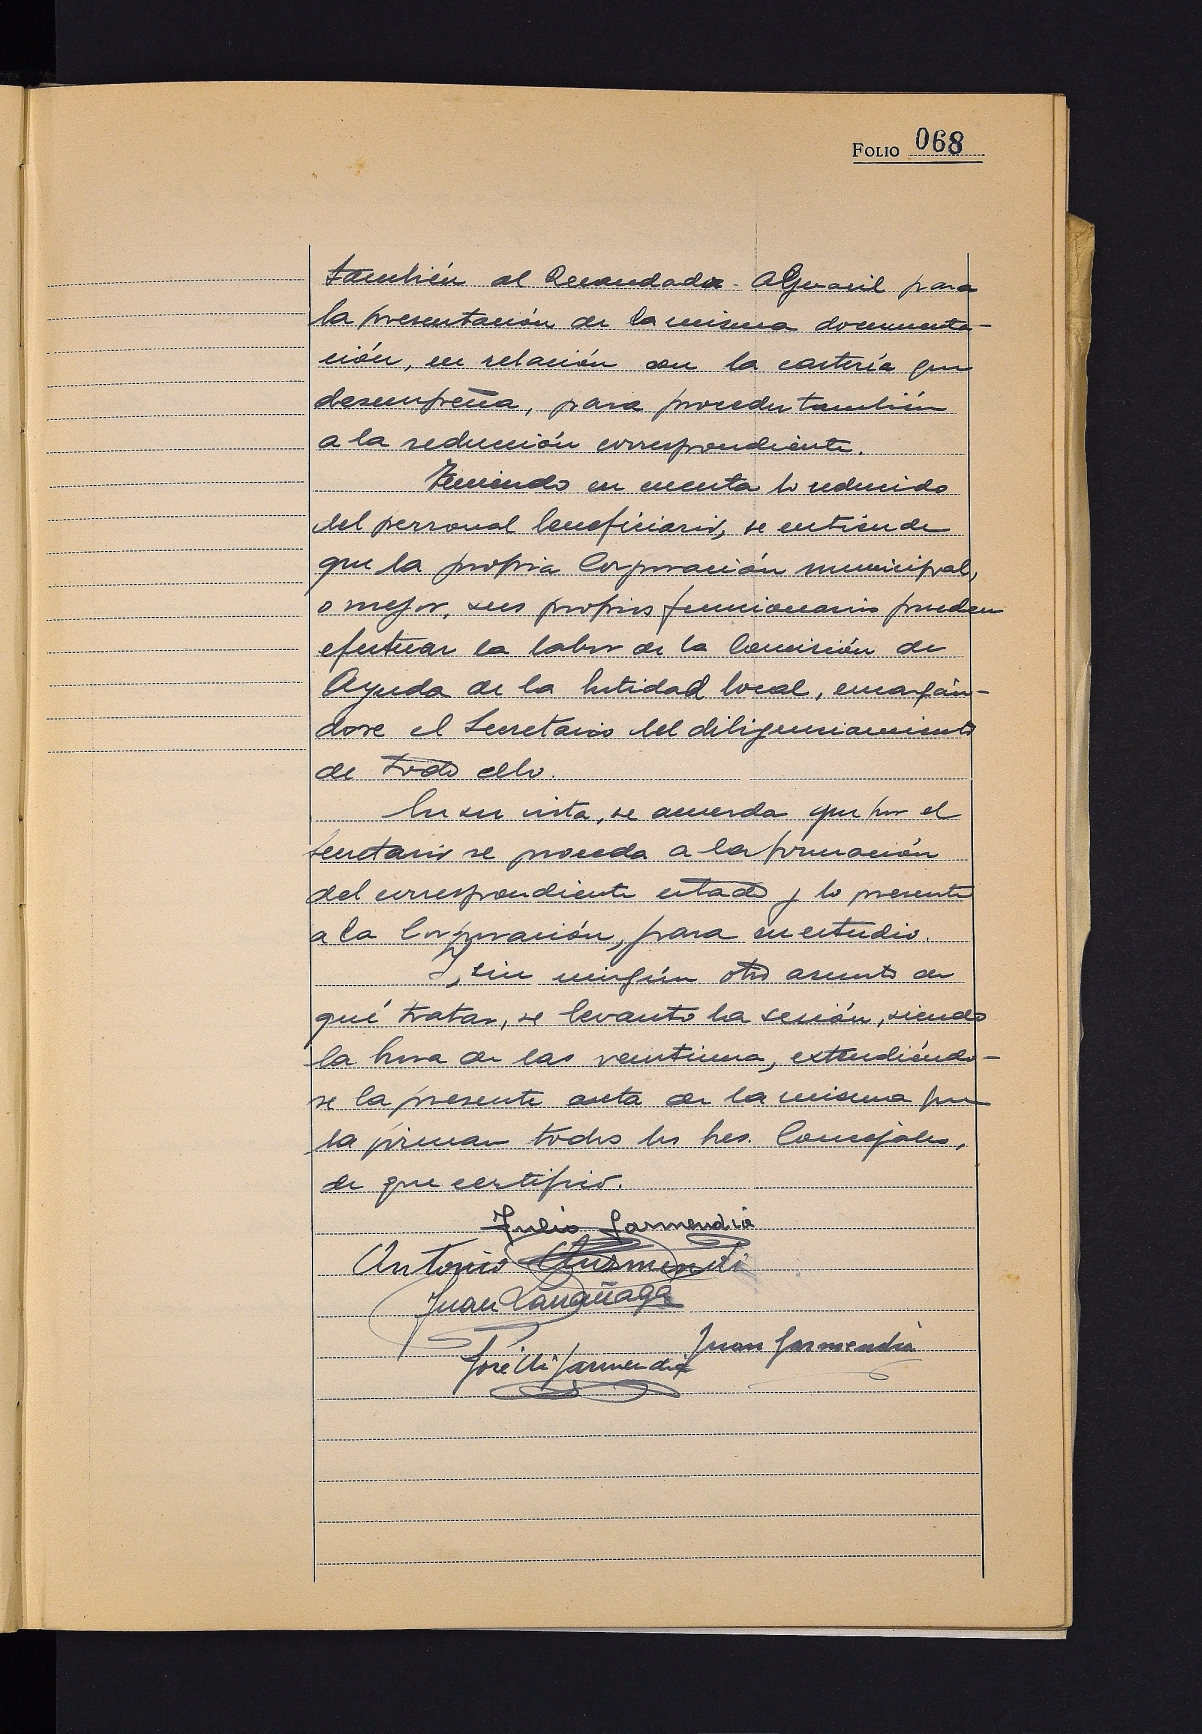 FOLIO 068
también al Recaudador-Alguacil para
la presentación de la misma documenta-
ción, en relación con la cartería que
desempeña, para proceder también
a la reducción correspondiente.
Teniendo en cuenta lo reducido
del personal beneficiario, se entiende
que la propia Corporación municipal,
o mejor, sus propios funcionarios pueden
efectuar la labor de la Comisión de
Ayuda de la Entidad local, encargán-
dose el Secretario del diligenciamiento
de todo ello.
En su vista, se acuerda que por el
Secretario se proceda a la formación
del correspondiente estado y lo presente
a la Corporación, para su estudio.
Y, sin ningún otro asunto de
qué tratar, se levantó la sesión, siendo
la hora de las veintiuna, extendiéndo-
se la presente acta de la misma que
la firman todos los Sres. Concejales,
de que certifico.
Julio Garmendia
Antonio Guzmendi
Juan Larrañaga
Juan Garmendia
José Mi Garmendia